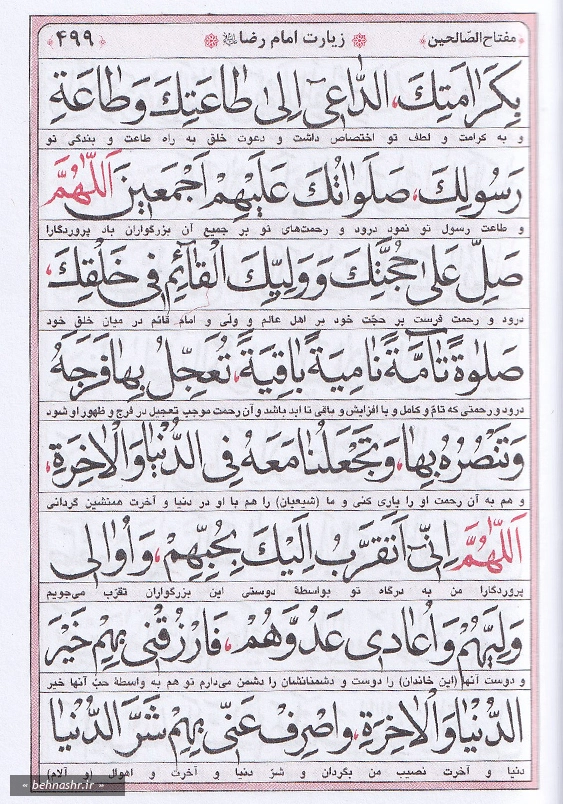 مفتاح الصّالحین زیارت امام رضا ۴۹۹
بِكَرَامَتِكَ، الدّٰاعِيٓ اِلىٰ طٰاعَتِكَ وَطٰاعَةِ
و به کرامت و لطف تو اختصاص داشت و دعوت خلق به راه طاعت و بندگی تو
رَسُولِكَ، صَلَوٰاتُكَ عَلَيْهِمْ اَجْمَعينَ اَللّٰهُمَّ
و طاعت رسول تو نمود درود و رحمت‌های تو بر جمیع آن بزرگواران باد پروردگارا
صَلِّ عَلىٰ حُجَّتِكَ وَوَلِيِّكَ الْقٰٓائِمِ فى خَلْقِكَ،
درود و رحمت فرست بر حجّت خود بر اهل عالم و ولّی و امام قائم در میان خلق خود
صَلٰوةً تٰٓامَّةً نٰامِيَةً بٰاقِيَةً، تُعَجِّلُ بِهٰا فَرَجَهُ
درود و رحمتی که تامّ و کامل و با افزایش و باقی تا ابد باشد و آن رحمت موجب تعجیل در فرج و ظهور او شود
وَتَنْصُرُهُ بِهٰا، وَتَجْعَلُنٰا مَعَهُ فِى الدُّنْيٰا وَالْاٰخِرَةِ،
و هم به آن رحمت او را یاری کنی و ما (شیعیان) را هم با او در دنیا و آخرت همنشین گردانی
اَللّٰهُمَّ اِنّىٓ اَتَقَرَّبُ اِلَيْكَ بِحُبِّهِمْ، وَاُوٰالى
پروردگارا من به درگاه تو بواسطهٔ دوستی این بزرگواران تقرّب می‌جویم
وَلِيَّهُمْ وَاُعٰادى عَدُوَّهُمْ، فَارْزُقْنى بِهِمْ خَيْرَ
و دوست آنها (این خاندان) را دوست و دشمنانشان را دشمن می‌دارم تو هم به واسطهٔ حبّ آنها خیر
الدُّنْيٰا وَالْاٰخِرَةِ، وَاصْرِفْ عَنّى بِهِمْ شَرَّ الدُّنْيٰا
دنیا و آخرت نصیب من بگردان و شرّ دنیا و آخرت و اهوال (و آلام)
« behnashr.ir »